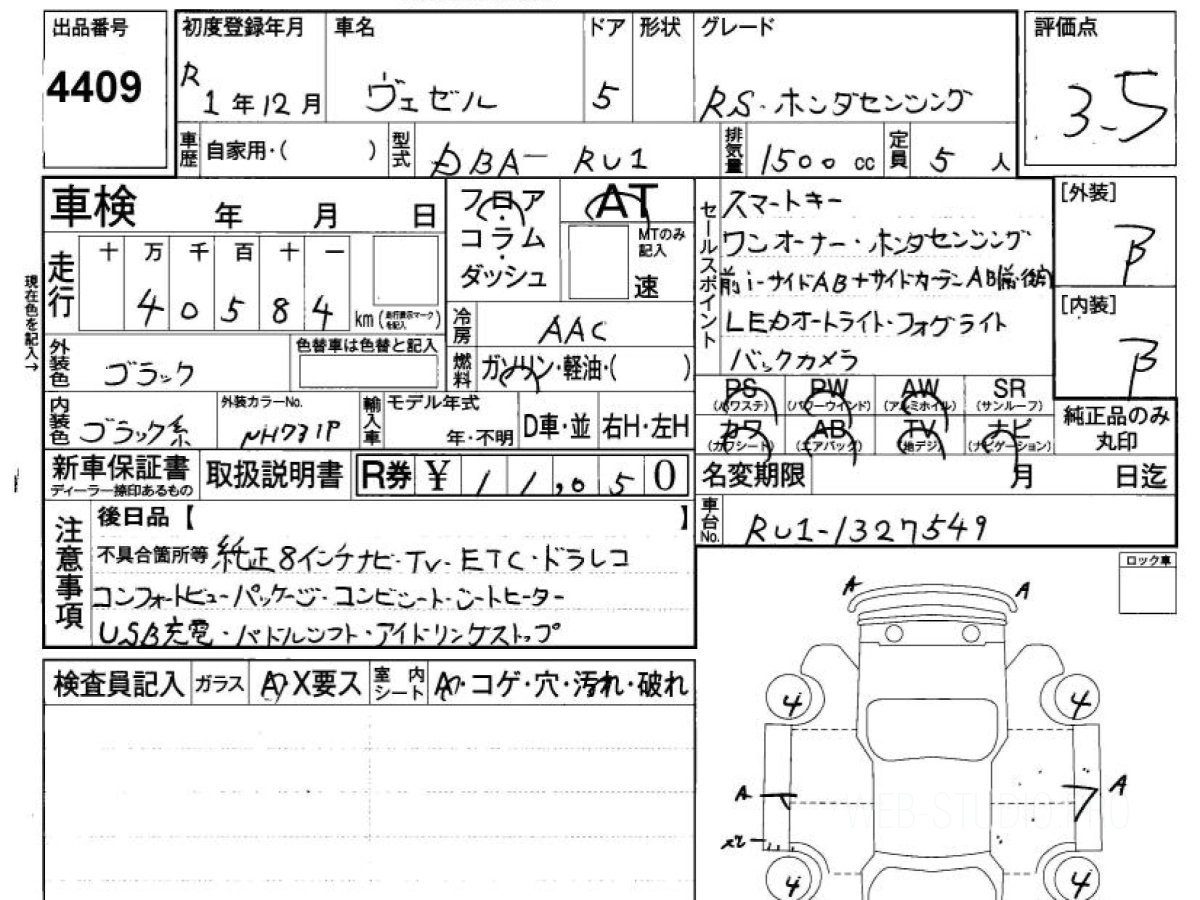 出品番号 初度登録年月 車名 ドア 形状 グレード 評価点
4409 R1年12月 ヴェゼル 5 RS・ホンダセンシング 3.5
車歴 自家用・( ) 型式 DBA- RU1 排気量 1500 cc 定員 5 人
車検 年 月 日
フロア
コラム
ダッシュ
AT
MTのみ記入
速
セールスポイント
スマートキー
ワンオーナー・ホンダセンシング
前i-サイドAB+サイドカーテンAB前・後
LEDオートライト・フォグライト
バックカメラ
[外装] B
[内装] B
現在色を記入→
走行 十 万 千 百 十 一
4 0 5 8 4 km (走行表示マークを記入)
冷房 AAC
燃料 ガソリン・軽油・( )
外装色 ブラック 色替車は色替と記入
内装色 ブラック系 外装カラーNo. NH731P 輸入車 モデル年式 年・不明 D車・並 右H・左H
PS (パワステ) PW (パワーウインド) AW (アルミホイル) SR (サンルーフ)
カワ (カワシート) AB (エアバック) TV (地デジ) ナビ (ナビゲーション)
純正品のみ丸印
新車保証書 ディーラー捺印あるもの 取扱説明書 R券 ¥ 11,050
名変期限 月 日迄
車台No. RU1-1327549
注意事項
後日品【 】
不具合箇所等 純正8インチナビ・TV・ETC・ドラレコ
コンフォートビューパッケージ・コンビシート・シートヒーター
USB充電・パドルシフト・アイドリングストップ
ロック車
検査員記入 ガラス A・X要ス 室内シート A・コゲ・穴・汚れ・破れ
A A
4 4
A A
4 4
WEB-STUDIO.PRO